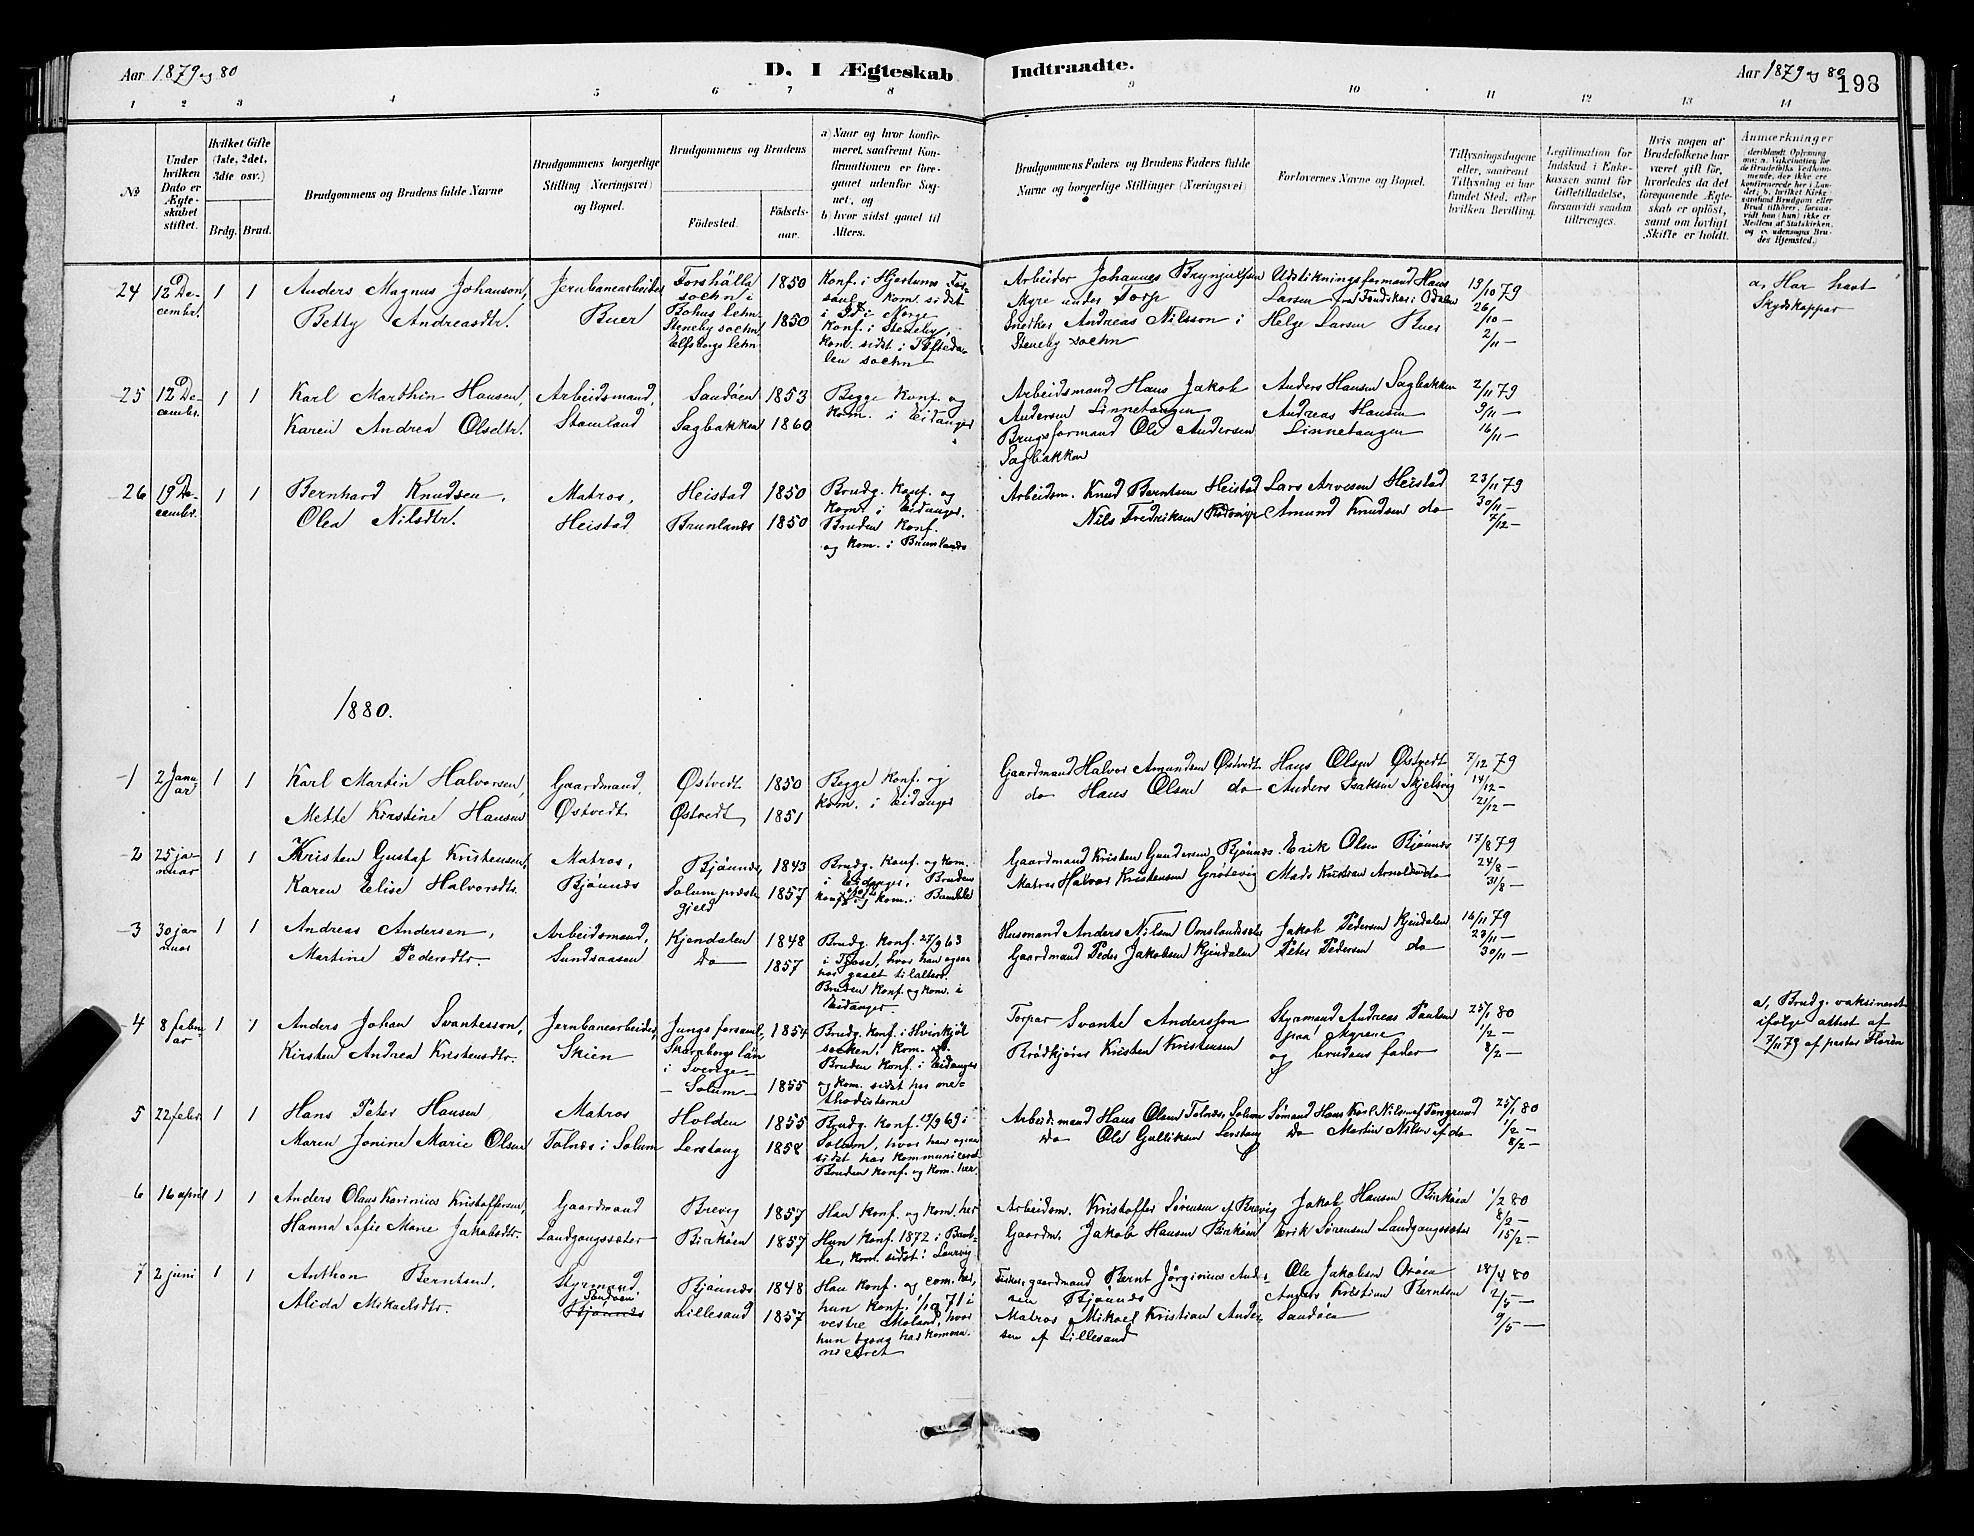 Aar 1879 og 80
D. I Ægteskab Indtraadte.
Aar 1879 og 80
198
1 2 3 4 5 6 7 8 9 10 11 12 13 14
No
Under hvilken Dato er Ægteskabet stiftet.
Hvilket Gifte (1ste, 2det, 3die osv.)
Brdg. Brud.
Brudgommens og Brudens fulde Navne
Brudgommens borgerlige Stilling (Næringsvei) og Bopæl.
Brudgommens og Brudens
Födested.
Födselsaar.
a) Naar og hvor konfirmeret, saafremt Konfirmationen er foregaaet udenfor Sognet, og
b) hvor sidst gaaet til Alters.
Brudgommens Faders og Brudens Faders fulde Navne og borgerlige Stillinger (Næringsvei)
Forlovernes Navne og Bopæl.
Tillysningsdagene eller, saafremt Tillysning ei har fundet Sted, efter hvilken Bevilling.
Legitimation for Indskud i Enkekassen samt for Giftetilladelse, forsaavidt saadan tiltrænges.
Hvis nogen af Brudefolkene har været gift før, hvorledes da det foregaaende Ægteskab er opløst, samt om lovligt Skifte er holdt.
Anmerkninger
24 12 December. 1 1
Anders Magnus Johanson, Jernbanearbeider Forshälla sochn i Bohus lehn 1850
Betty Andreasdtr. Buer Steneby sochn Elfsborgs lehn 1850
Konf. i Hjertums
kom. sidst
i Norge
Konf. i Steneby,
kom. sidst i Töftedalen sochn
Arbeider Johannes Brynjulfsen
Myre under Torp
Snedker Andreas Nilsson i
Steneby sochn
Udstikningsformand Hans
Larsen fra i Odalen
Helge Larsen Buer
19/10 79
26/10 -
2/11 -
a, Har havt
Skydskopper
25 12 December. 1 1
Karl Marthin Hansen, Arbeidsmand, Sandøen 1853
Karen Andrea Olsdtr. Stamland Sagbakken 1860
Begge Konf. og
kom. i Eidanger
Arbeidsmand Hans Jakob
Andersen Linnetangen
Brugsformand Ole Andersen
Sagbakken
Anders Hansen Sagbakken
Andreas Hansen
Linnetangen
2/11 79
9/11 -
16/11 -
26 19 December. 1 1
Bernhard Knudsen, Matros, Heistad 1850
Olea Nilsdtr. Heistad Brunlanes 1850
Brudg. Konf. og
kom. i Eidanger.
Bruden Konf.
og kom. i Brunlanes
Arbeidsm. Knud Berntsen Heistad
Nils Fredriksen
Lars Arvesen Heistad
Amund Knudsen do
23/11 79
30/11 -
7/12 -
1880.
1 2 Januar 1 1
Karl Martin Halvorsen, Gaardmand, Østvedt 1850
Mette Kirstine Hansen Østvedt Østvedt 1851
Begge Konf. og
kom. i Eidanger
Gaardmand Halvor Amundsen Østvedt
do Hans Olsen do
Hans Olsen Østvedt
Anders Isaksen Skjelsvig
7/12 79
14/12 -
21/12 -
2 25 januar 1 1
Kristen Gustaf Kristensen, Matros, Bjønnes, 1843
Karen Elise Halvorsdtr. Bjønnes Solum præstegjeld 1857
Brudg. Konf. og kom.
i Eidanger, Bruden
konf. og kom. i Bamble
Gaardmand Kristen Gundersen Bjønnes.
Matros Halvor Kristensen Grötsvig
Erik Olsen Bjønnes
Mads Knudsen
17/8 79
24/8 -
31/8 -
3 30 januar 1 1
Andreas Andersen, Arbeidsmand, Kjendalen 1848
Martine Pedersdtr. Sundsaasen Do 1857
Brudg. konf. 27/9 63
i Tjose, hvor han ogsaa
har gaaet til alters.
Bruden Konf. og kom. i
Eidanger.
Husmand Anders Nilsen Omlandseter
Gaardmand Peder Jakobsen Kjendalen
Jakob Pedersen Kjendalen
Peter Pedersen do
16/11 79
23/11 -
30/11 -
4 8 februar 1 1
Anders Johan Svantesson, Jernbanearbeider, Jungs forsaml., Skaraborgs län i Sverige 1854
Kirsten Andrea Kristensdtr. Skien Solum 1855
Brudg. Konf. i Hvinkjöl
socken, kom. do.
Bruden konf. i Eidanger
og kom. sidst hos methodisterne
Torpar Svante Andersson
Brödkjører Kristen Kristensen
Styrmand Andreas Paulsen
paa Myrene
og brudens fader
25/1 80
1/2 -
8/2 -
a, Brudg. vaksineret
ifølge attest af
3/11 79 af pastor Floren
5 22 febr 1 1
Hans Peter Hansen Matros Holden 1855
Maren Jonine Marie Olsen Tolnes i Solum Lerstang 1858
Brudg. konf. 19/9 69 i
Solum, hvor han ogsaa
sidst har kommuniceret
Bruden konf. og kom. her
Arbeidsmand Hans Olsen Tolnes, Solum
Do Ole Gulliksen Lerstang
Sømand Hans Karl Nilsen af Porsgrund
Do Martin Nilsen af do
25/1 80
1/2 -
8/2 -
6 16 april 1 1
Anders Olaus Karinius Kristoffersen, Gaardmand Brevig 1857
Hanna Sofie Marie Jakobsdtr. Landgangssæter Birköen 1857
Han Konf. og kom. her
Hun konf. 1872 i Bamble, kom. sidst i Laurvig
Arbeidsm. Kristoffer Sørensen af Brevig
Gaardm. Jakob Hansen Birköen
Jakob Hansen Birköen
Erik Sørensen Landgangssæter
1/2 80
8/2 -
15/2 -
7 2 juni 1 1
Anthon Berntsen, Styrmand Bjønnes 1848
Alida Mikaelsdtr. Sandøen Bjønnes Lillesand 1857
Han konf. og com. her,
hun konf. 1/10 71 i
vestre Moland, hvor
hun ogsaa har kommuniceret
gaardmand Bernt Jörginius Andersen Bjønnes
Matros Mikael Kristian Andersen af Lillesand
Ole Jakobsen Orøen
Anders Kristian Berntsen
Sandöen
18/4 80
2/5 -
9/5 -